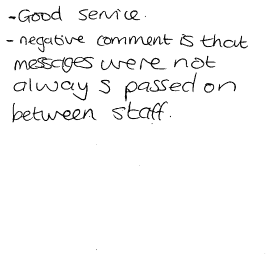 -Good service.
- negative comment is that
messages were not
always passed on
between staff.